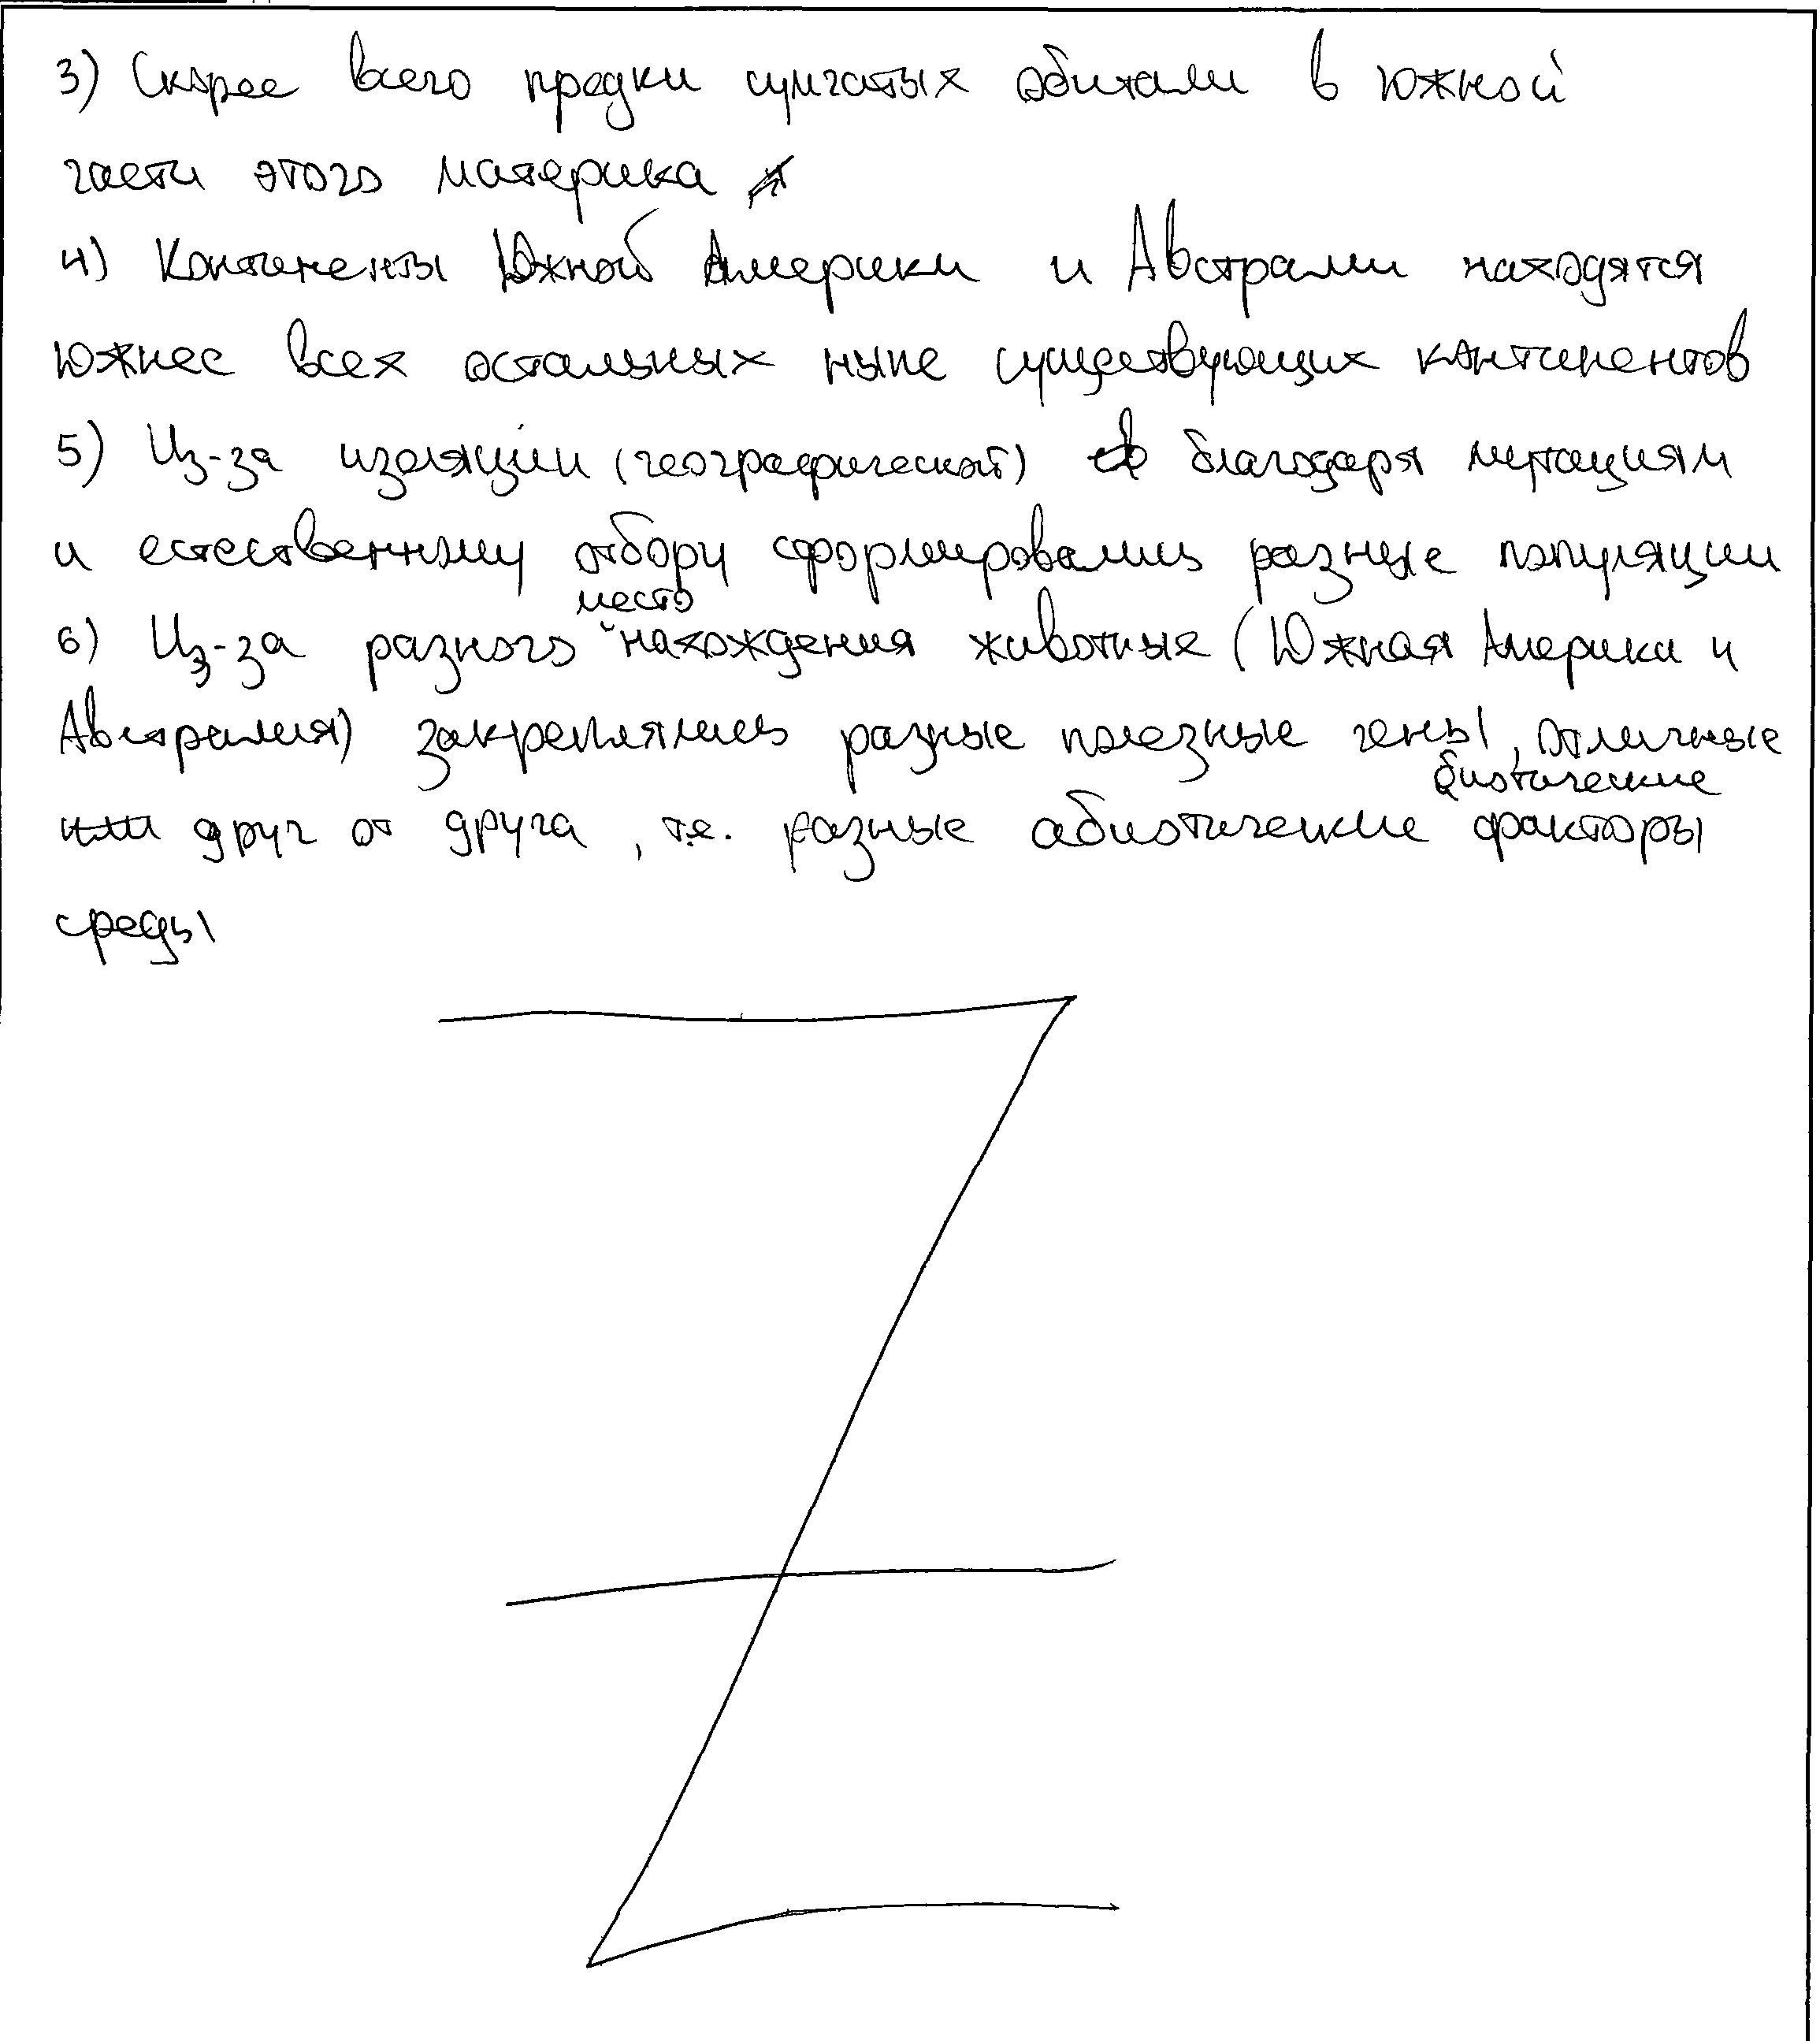 3) Скорее всего предки сумчатых обитали в южной
части этого материка
4) Континенты Южной Америки и Австралии находятся
южнее всех остальных ныне существующих континентов
5) Из-за изоляции (географической) благодаря мутациям
и естественному отбору сформировались разные популяции
6) Из-за разного местонахождения животные (Южная Америка и
Австралия) закреплялись разные полезные гены, отличные
друг от друга, т.е. разные абиотические биотические факторы
среды